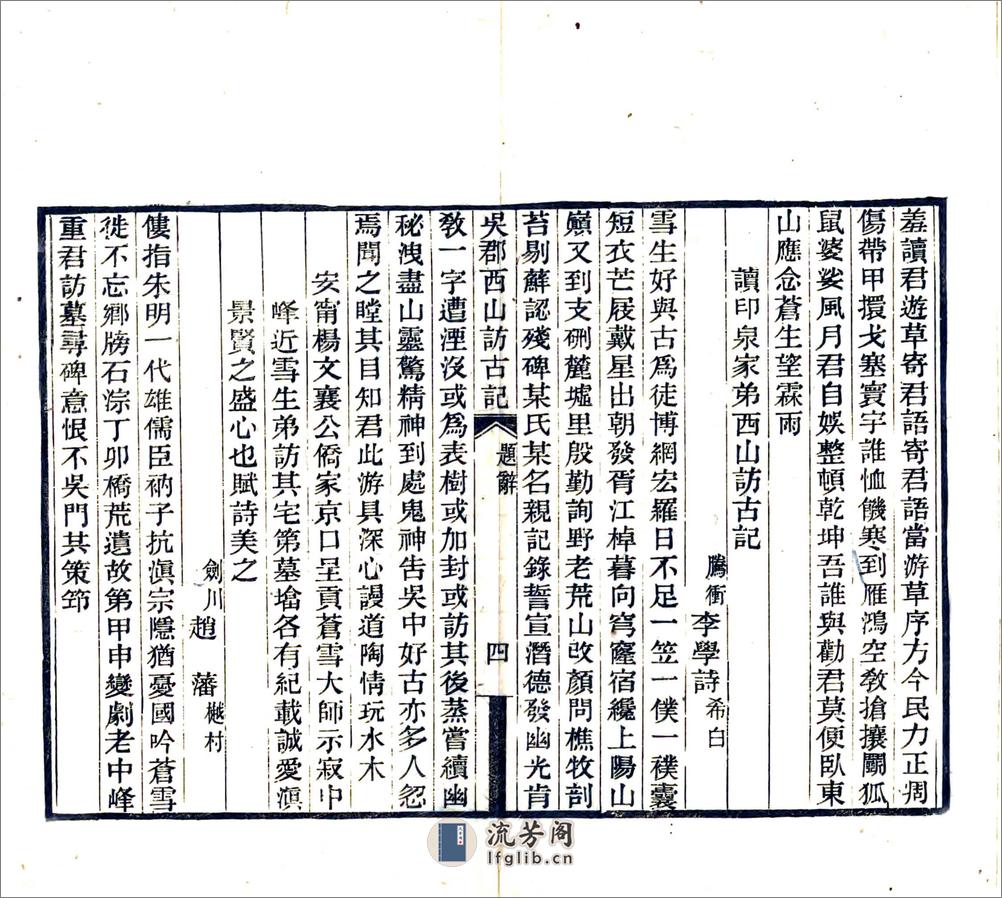 羞讀君遊草寄君語寄君語當游草序方今民力正凋
傷帶甲擐戈塞寰宇誰恤饑寒到雁鴻空教搶攘鬭狐
鼠婆娑風月君自娛整頓乾坤吾誰與勸君莫便臥東
山應念蒼生望霖雨
讀印泉家弟西山訪古記
騰衝李學詩希白
雪生好與古爲徒博網宏羅日不足一笠一僕一襆囊
短衣芒屐戴星出朝發胥江棹暮向穹窿宿纔上陽山
巔又到支硎麓墟里殷勤詢野老荒山改顏問樵牧剖
苔剔蘚認殘碑某氏某名親記錄誓宣潛德發幽光肯
吳郡西山訪古記
題辭
四
教一字遭湮沒或爲表樹或加封或訪其後蒸嘗續幽
秘洩盡山靈驚精神到處鬼神告吳中好古亦多人忽
焉聞之瞠其目知君此游具深心謾道陶情玩水木
安甯楊文襄公僑家京口呈貢蒼雪大師示寂中
峰近雪生弟訪其宅第墓墖各有紀載誠愛滇
景賢之盛心也賦詩美之
劍川趙藩樾村
僂指朱明一代雄儒臣衲子抗滇宗隱猶憂國吟蒼雪
徙不忘鄉牓石淙丁卯橋荒遺故第甲申變劇老中峰
重君訪墓尋碑意恨不吳門共策筇
流芳阁
lfglib.cn